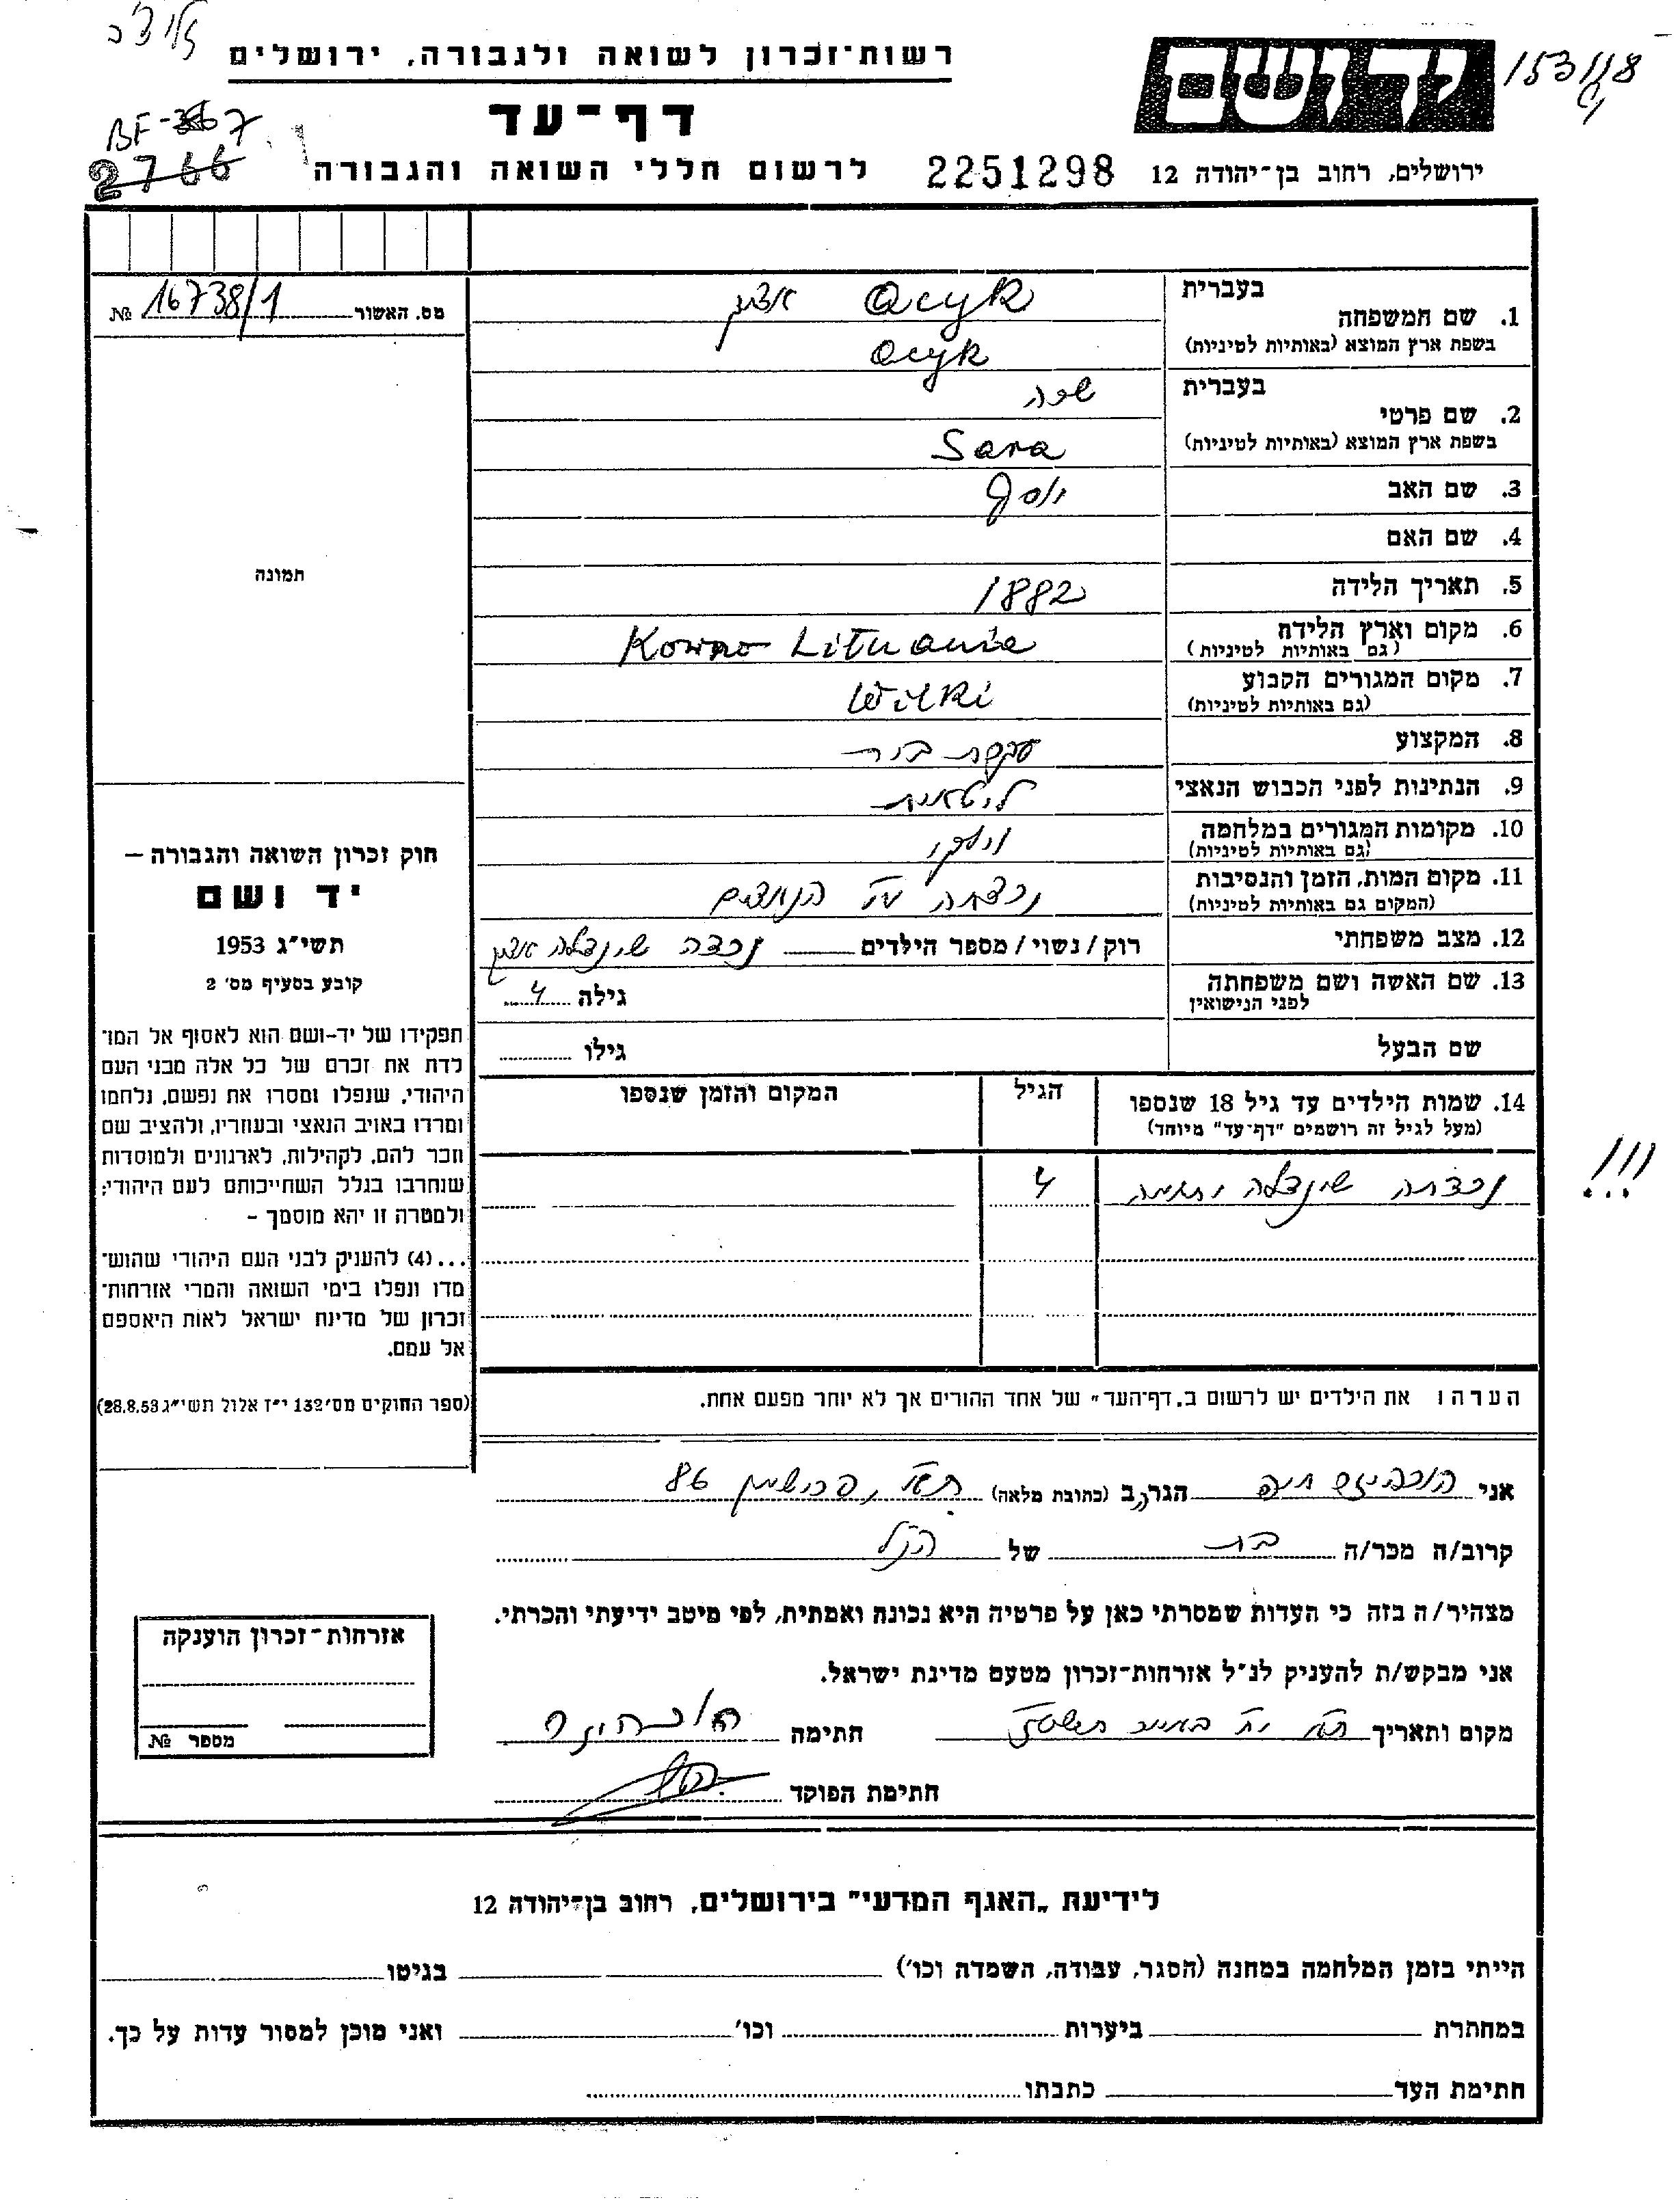 153118
רשות־זכרון לשואה ולגבורה, ירושלים
ידושם
דף־עד
BF-367
2766
ירושלים, רחוב בן־יהודה 12
2251298
לרשום חללי השואה והגבורה
מס. האשור 16738/1 №
בעברית
1. שם המשפחה
Ocyk
בשפת ארץ המוצא (באותיות לטיניות)
Ocyk
בעברית
שרה
2. שם פרטי
בשפת ארץ המוצא (באותיות לטיניות)
Sara
3. שם האב
יוסף
4. שם האם
5. תאריך הלידה
1882
6. מקום וארץ הלידה
(גם באותיות לטיניות)
Kowno Lituania
7. מקום המגורים הקבוע
(גם באותיות לטיניות)
Wilki
8. המקצוע
עקרת בית
9. הנתינות לפני הכבוש הנאצי
ליטאית
10. מקומות המגורים במלחמה
(גם באותיות לטיניות)
וילקי
11. מקום המות, הזמן והנסיבות
(המקום גם באותיות לטיניות)
נרצחה ע"י הנאצים
12. מצב משפחתי
רוק/נשוי/מספר הילדים נכדה שיינדלה
13. שם האשה ושם משפחתה
לפני הנישואין
גילה 4
שם הבעל
גילו
14. שמות הילדים עד גיל 18 שנספו
(מעל לגיל זה רושמים "דף־עד" מיוחד)
הגיל
המקום והזמן שנספו
נכדתה שיינדלה
4
!!!
הערה: את הילדים יש לרשום ב„דף־העד" של אחד ההורים אך לא יותר מפעם אחת.
תמונה
חוק זכרון השואה והגבורה –
יד ושם
תשי"ג 1953
קובע בסעיף מס׳ 2
תפקידו של יד-ושם הוא לאסוף אל המו־
לדת את זכרם של כל אלה מבני העם
היהודי, שנפלו ומסרו את נפשם, נלחמו
ומרדו באויב הנאצי ובעוזריו, ולהציב שם
וזכר להם, לקהילות, לארגונים ולמוסדות
שנחרבו בגלל השתייכותם לעם היהודי;
ולמטרה זו יהא מוסמך –
...(4) להעניק לבני העם היהודי שהוש־
מדו ונפלו בימי השואה והמרי אזרחות־
זכרון של מדינת ישראל לאות היאספם
אל עמם.
(ספר החוקים מס׳ 132 י"ז אלול תשי"ג 28.8.53)
אני חיה הגר/ה ב (כתובת מלאה) ת"א, 86
קרוב/ה מכר/ה בת של הנ"ל
מצהיר/ה בזה כי העדות שמסרתי כאן על פרטיה היא נכונה ואמתית, לפי מיטב ידיעתי והכרתי.
אני מבקש/ת להעניק לנ"ל אזרחות־זכרון מטעם מדינת ישראל.
מקום ותאריך ת"א באייר חתימה
חתימת הפוקד
אזרחות־זכרון הוענקה
מספר №
לידיעת „האגף המדעי" בירושלים, רחוב בן־יהודה 12
הייתי בזמן המלחמה במחנה (הסגר, עבודה, השמדה וכו׳) בגיטו
במחתרת ביערות וכו׳ ואני מוכן למסור עדות על כך.
חתימת העד כתבתו